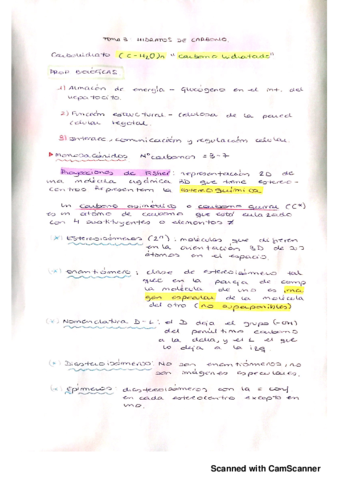 TEMA 3 HIDRATOS DE CARBONO
Carbohidrato (C-H2O)n "carbono hidratado"
PROP BIOLÓGICAS
1) Almacén de energía - Glucógeno en el int. del
hepatocito.
2) Función estructural - celulosa de la pared
celular vegetal.
3) comunicación y regulación celular.
Monosacáridos Nº carbonos = 3-7
Proyecciones de Fisher: representación 2D de
una molécula orgánica 3D que tiene estereo-
centros. Representan la estereoquímica
Un carbono asimétrico o carbono quiral (C*)
es un átomo de carbono que está enlazado
con 4 sustituyentes o elementos ≠
Estereoisómeros (2^n): moléculas que difieren
en la orientación 3D de sus
átomos en el espacio.
enantiómero: clase de estereoisómero tal
que en la pareja de comp
la molécula de uno es ima
gen especular de la molécula
del otro (no superponibles)
Nomenclatura D-L: el D deja el grupo (-OH)
del penúltimo carbono
a la dcha, y el L el que
lo deja a la izq
Diastereoisómeros: No son enantiómeros, no
son imágenes especulares.
Epímeros: diastereoisómeros con la = conf
en cada estereocentro excepto en
uno.
Scanned with CamScanner